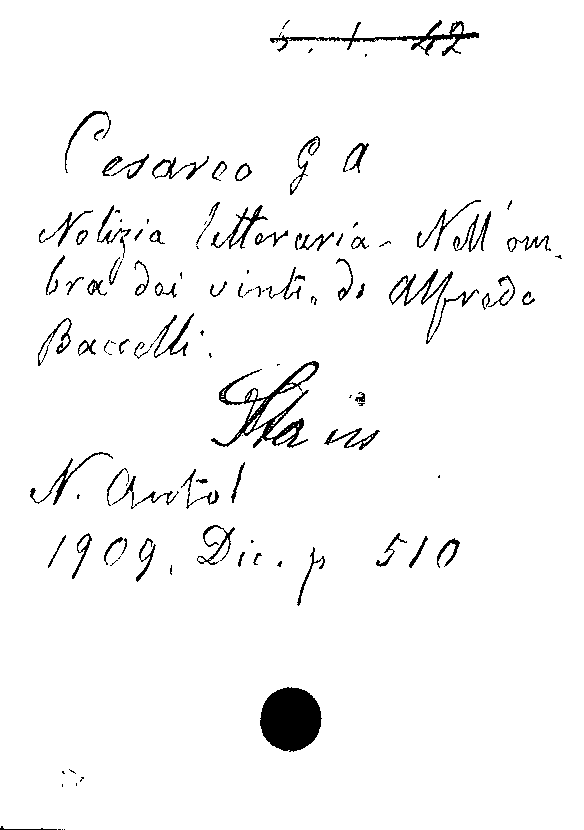 5. 1. 42
Cesareo G A
Notizia letteraria - Nell'om-
bra dei vinti. di Alfredo
Baccelli.
N. Antol
1909. Dic. p 510